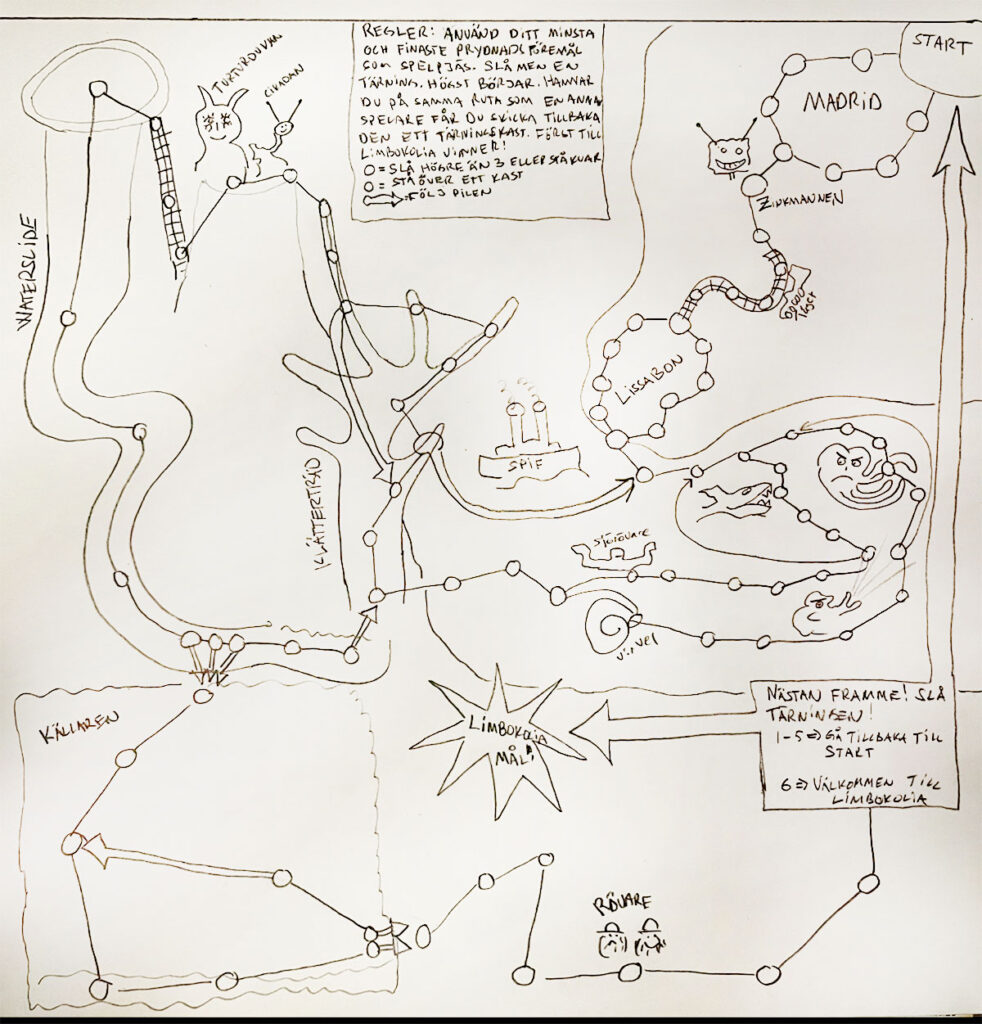 REGLER: ANVÄND DITT MINSTA
OCH FINASTE PRYDNADSFÖREMÅL
SOM SPELPJÄS. SLÅ MEN EN
TÄRNING. HÖGST BÖRJAR. HAMNAR
DU PÅ SAMMA RUTA SOM EN ANNAN
SPELARE FÅR DU SKICKA TILLBAKA
DEN ETT TÄRNINGSKAST. FÖRST TILL
LIMBOKOLIA VINNER!
O = SLÅ HÖGRE ÄN 3 ELLER STÅ KVAR
O = STÅ ÖVER ETT KAST
= FÖLJ PILEN
START
MADRID
ZINKMANNEN
TURTURDUVAN
CIKADAN
WATERSLIDE
LISSABON
SPIF
KLÄTTERTRÄD
SJÖRÖVARE
VIRVEL
KÄLLAREN
LIMBOKOLIA
MÅL!
NÄSTAN FRAMME! SLÅ
TÄRNINGEN!
1-5 => GÅ TILLBAKA TILL
START
6 => VÄLKOMMEN TILL
LIMBOKOLIA
RÖVARE